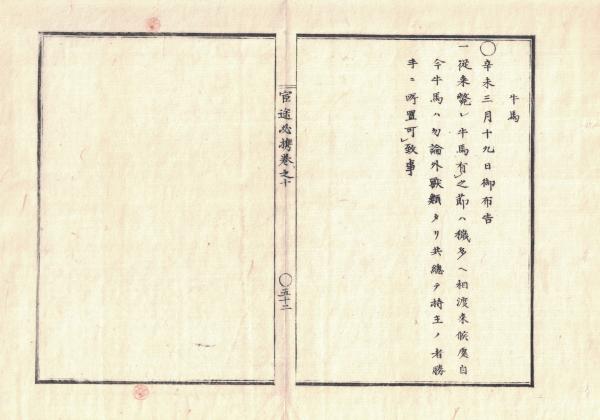 牛馬
〇辛未三月十九日御布告
一従来斃レ牛馬有之節ハ穢多ヘ相渡来候處自
今牛馬ハ勿論外獸類タリ共總テ持主ノ者勝
手ニ所置可致事
官途必携巻之十
〇五十二